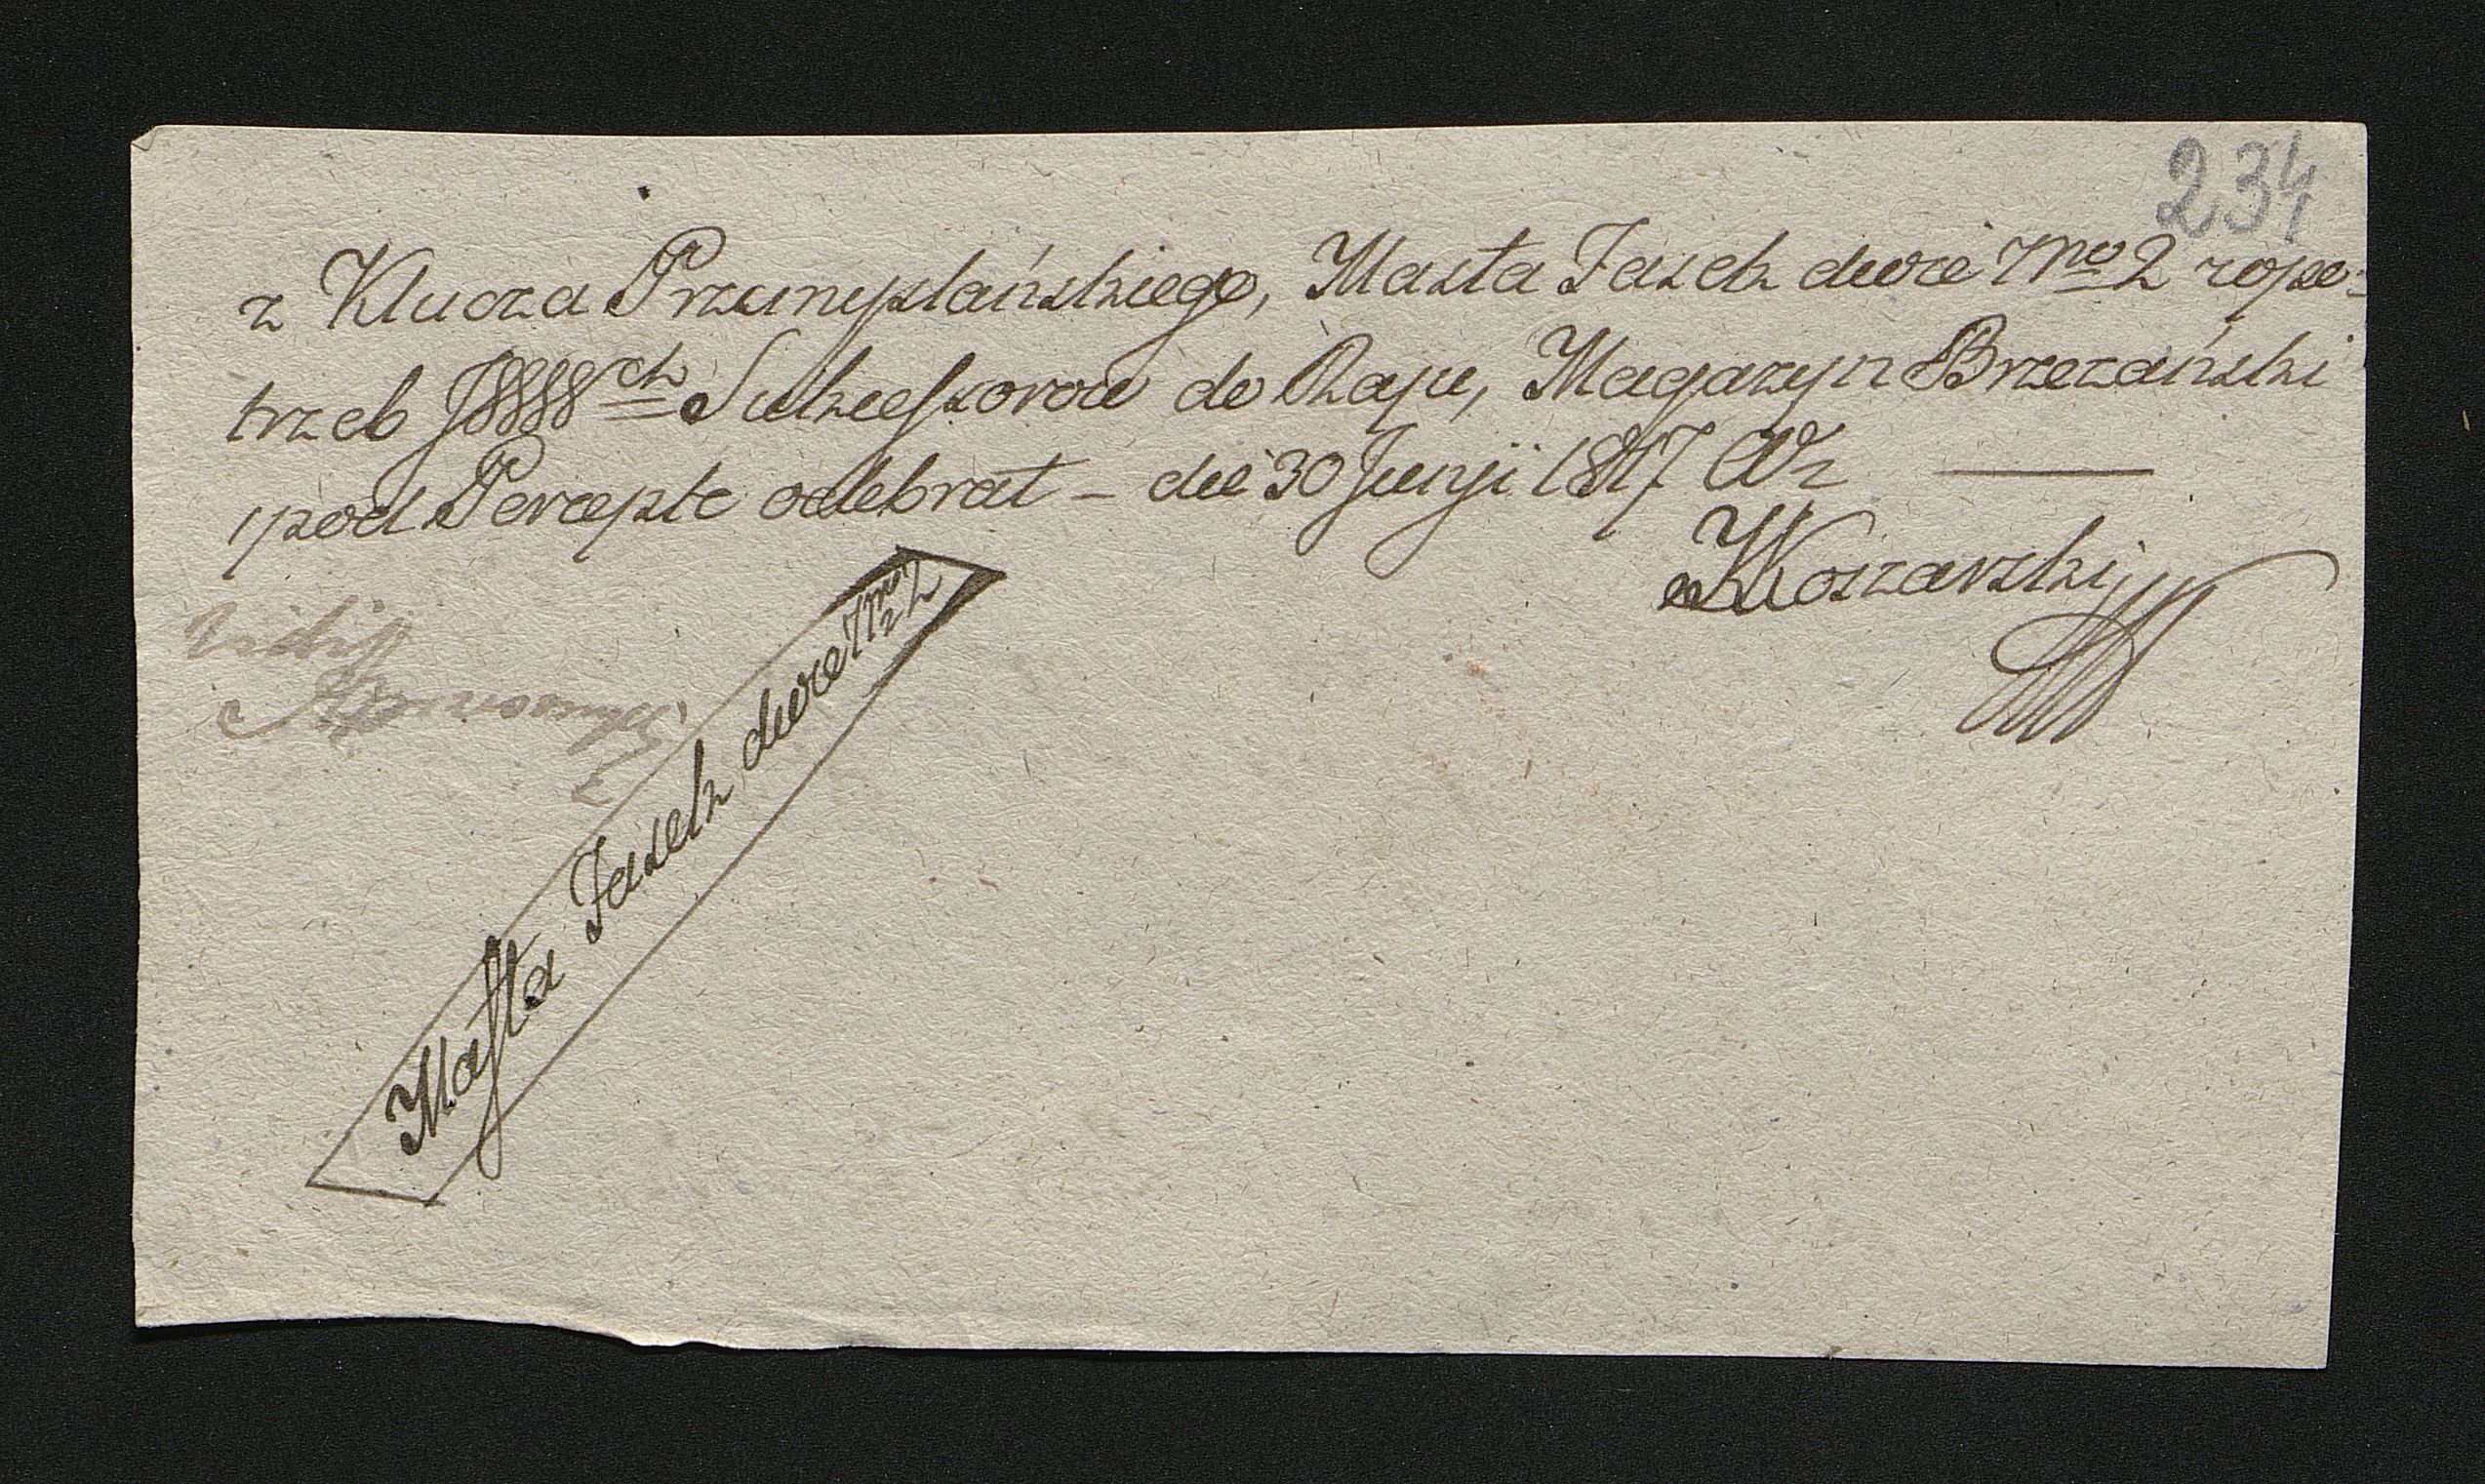 234
z Klucza Przemyslańskiego, Masła Fasek dwie Nro 2 zopo=
trzeb JWWWch Sukcessorow do Raju, Magazyn Brzezański
pod Percepte odebrał – die 30 Junji 1817 Ww
Koszarski
Vidi
Masła Fasek dwie Nro 2